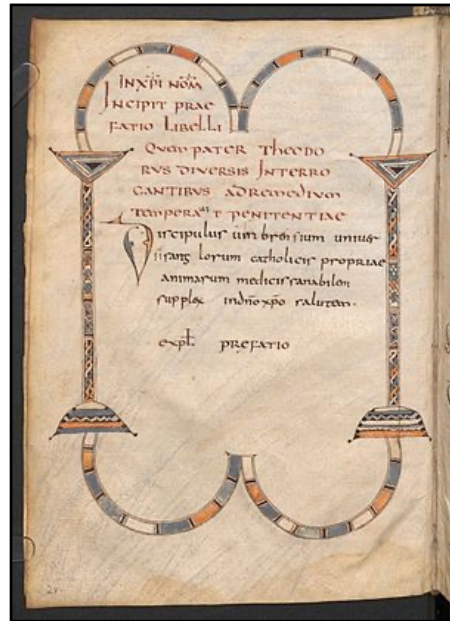 IN XPI NOM
INCIPIT PRAE
FATIO LIBELLI
QUEM PATER THEODO
RUS DIVERSIS INTERRO
GANTIBUS AD REMEDIUM
TEMPERAUIT PENITENTIAE
Discipulus umbrensium univer
sis anglorum catholicis propriae
animarum medicis sanabilem
supplex in dno xpo salutem.
expl. prefatio